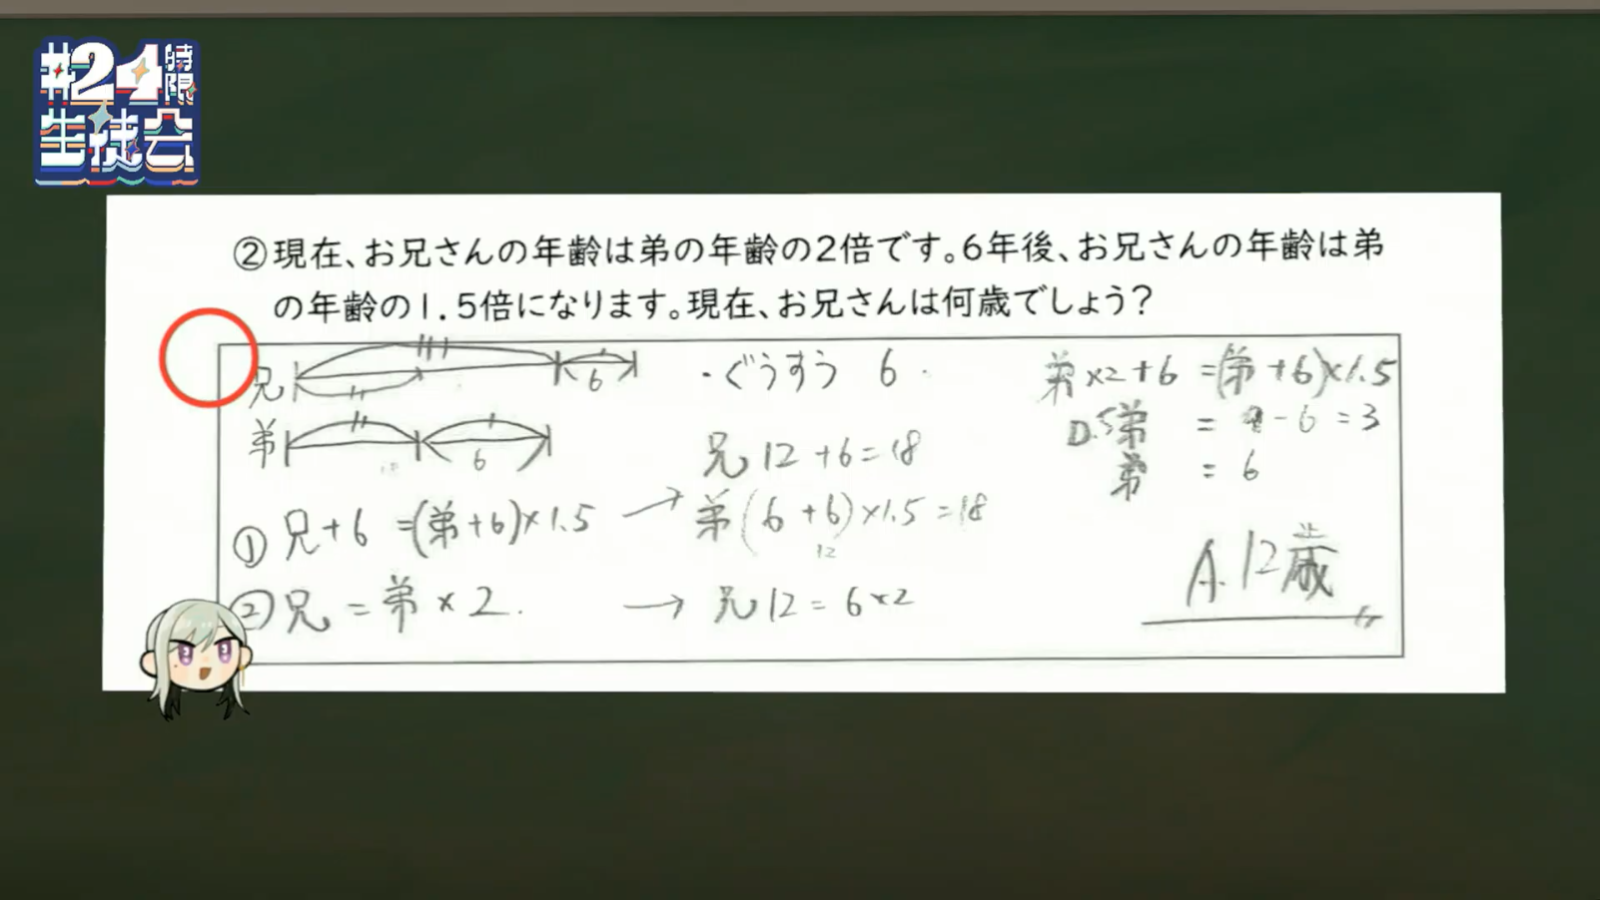 #24時限
生徒会
②現在、お兄さんの年齢は弟の年齢の2倍です。6年後、お兄さんの年齢は弟
の年齢の1.5倍になります。現在、お兄さんは何歳でしょう?
兄 6
弟 6
①兄+6=(弟+6)×1.5
②兄=弟×2.
・ぐうすう 6.
兄12+6=18
→弟(6+6)×1.5=18
12
→兄12=6×2
弟×2+6=(弟+6)×1.5
0.5弟=9-6=3
弟=6
A.12歳